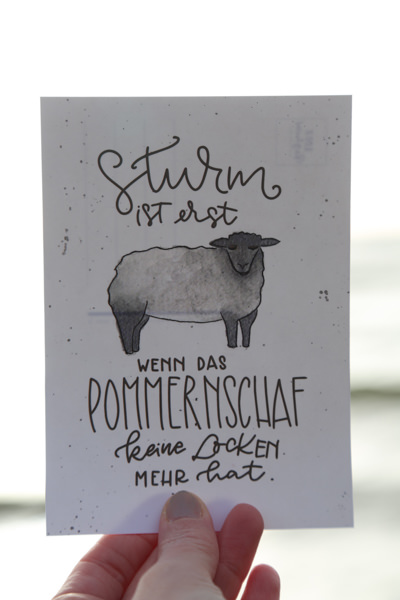 Sturm
ist erst
WENN DAS
POMMERNSCHAF
keine LOCKEN
MEHR hat.